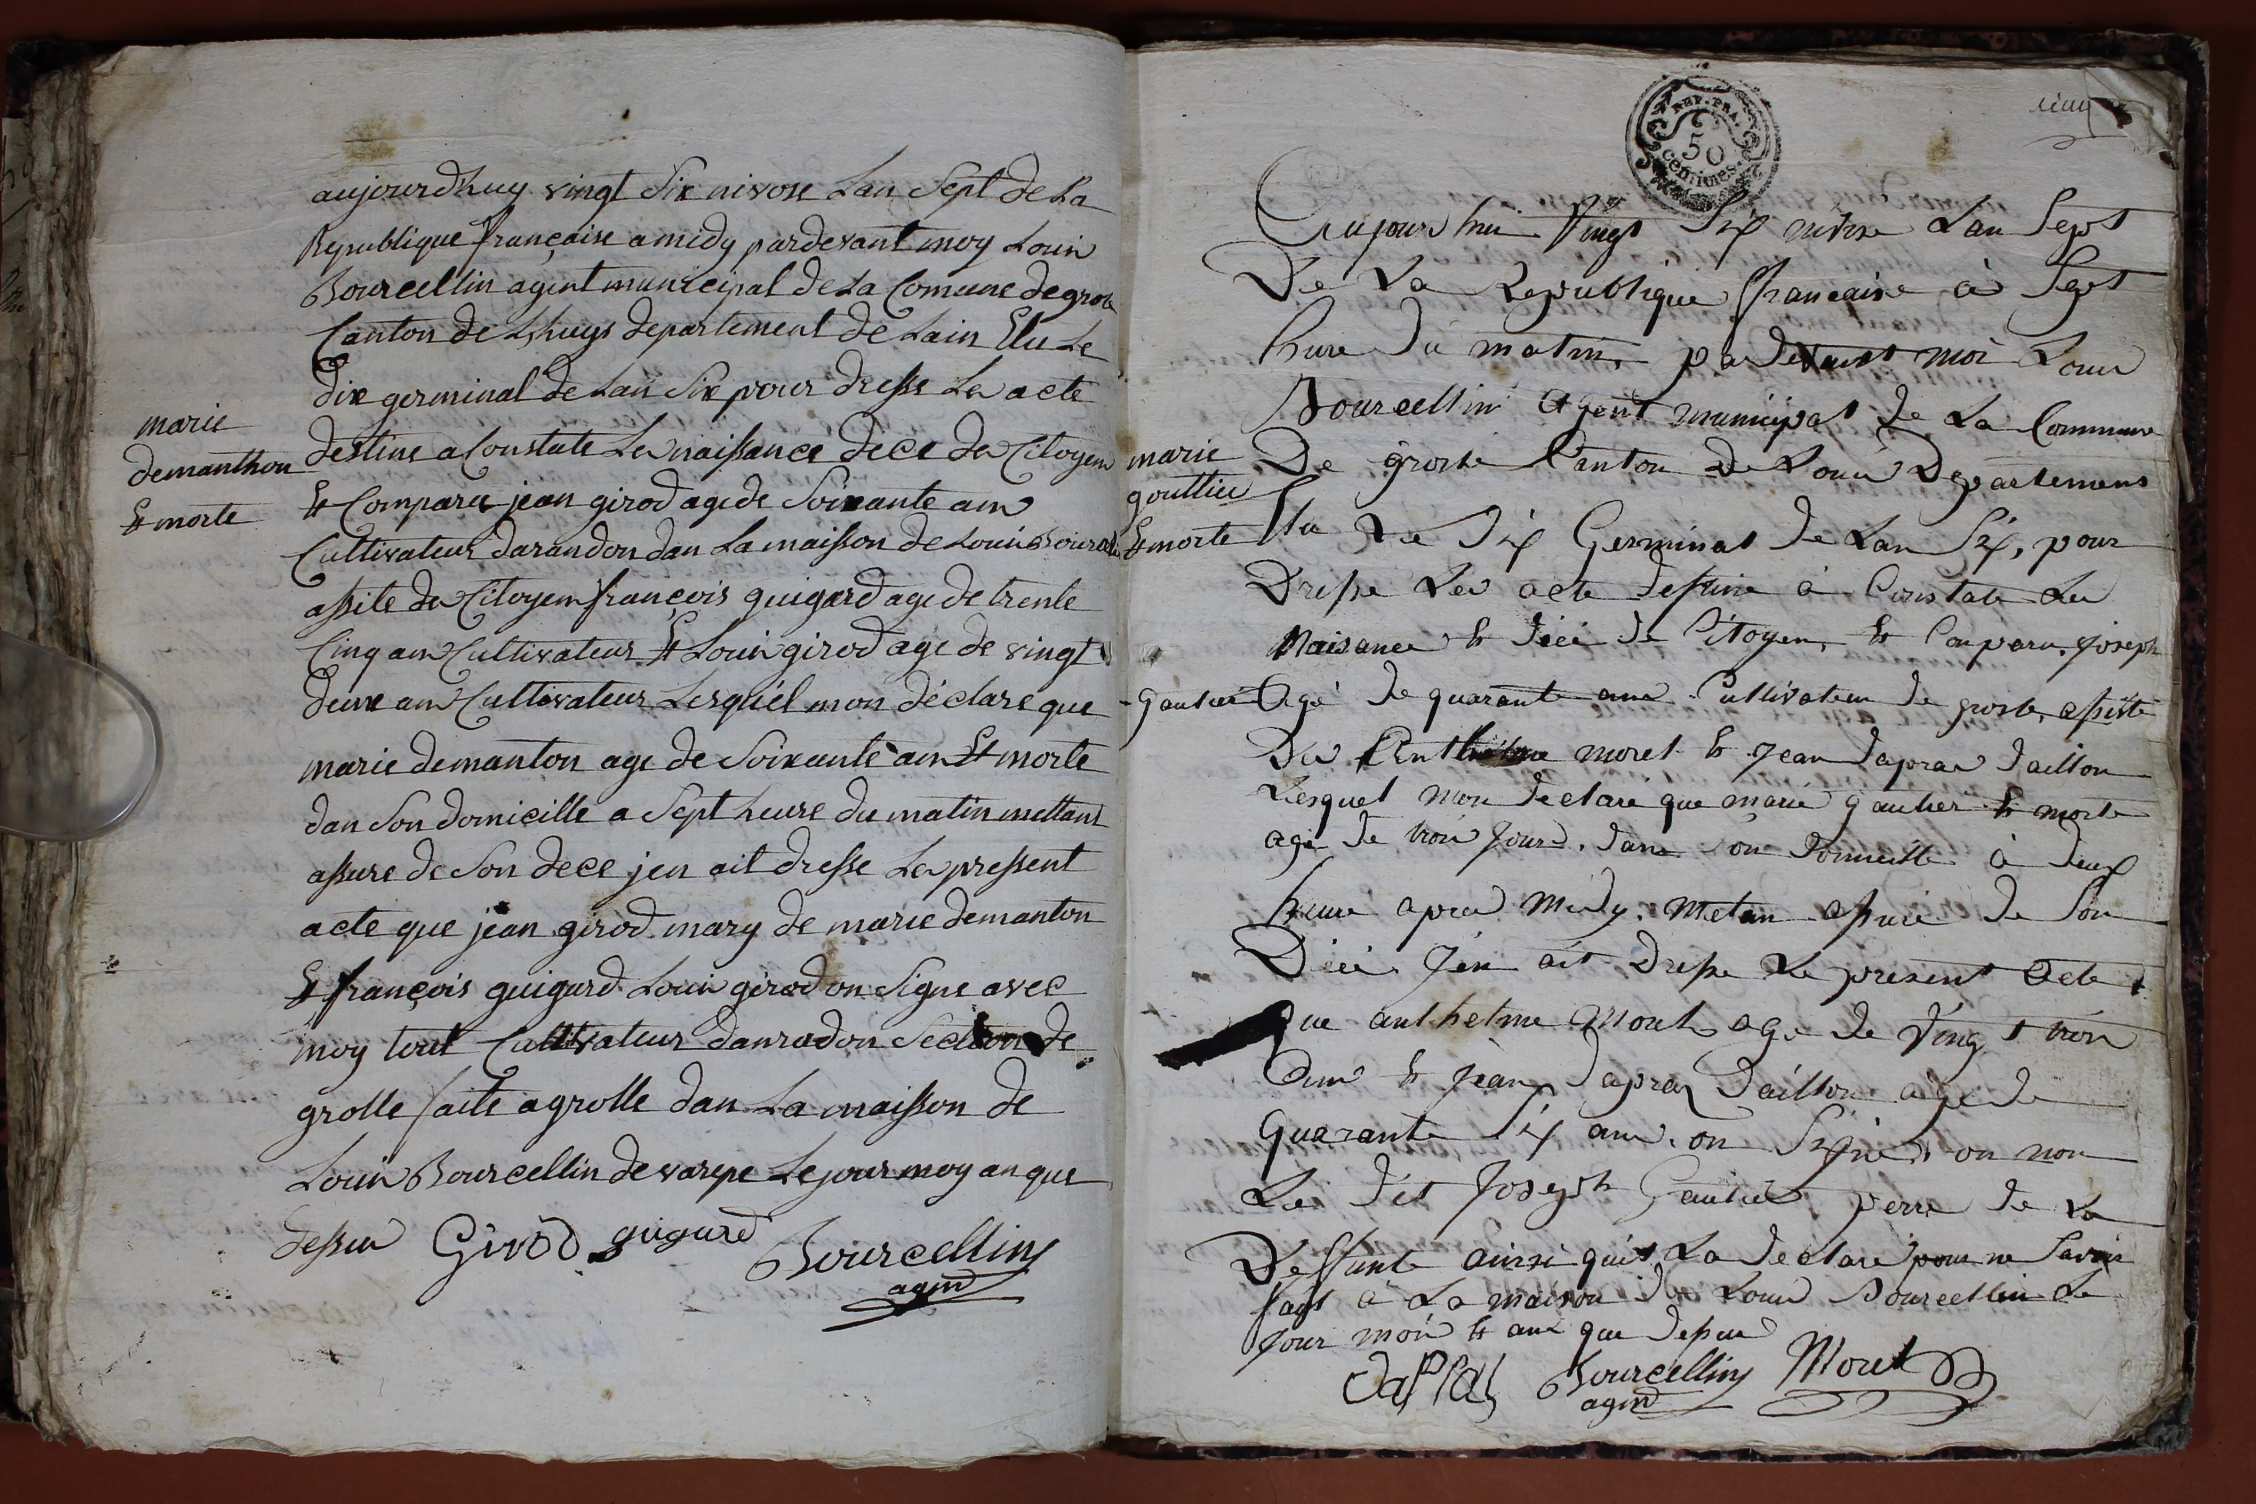 aujourdhuy vingt Six nivose Lan Sept de La
Republique française a midy pardevant moy Louis
Bourcellin agint municipal de La Comune de grole
Canton de Lhuys departement de Lain Elu Le
dix germinal de Lan Six pour dresse Les acte
marie
demanthon
Et morte
destine a Constate Les naissance dece des Citoyen
Et Comparu jean girod age de Soixante ans
Cultivateur darandon dan La maison de Louis Bourcelin
assite des Citoyen françois guigard age de trente
Cinq ans Cultivateur Et Louis girod age de vingt
deux ans Cultivateur Lesquel mon déclare que
marie demanton age de Soixante ans Et morte
dan Son domicille a Sept heure du matin mettant
assure de Son dece jen ait dresse Le pressent
acte que jean girod mary de marie demanton
Et françois guigard Louis girod on Signe avec
moy tout Cultivateur danradon Section de
grolle faite a grolle dan La maison de
Louis Bourcellin de varepe Le jour moy an que
dessus Girod guguard
Bourcellin
agent
REP. FRA.
50
centimes
cinq
Aujourhui Vingt Six nivose Lan Sept
De La Republique française à Sept
hure du matin, pardevant moi Louis
Bourcellin agent municipal de La Commune
marie
gouttier
Et morte
De groste Canton De Louis Departement
Elu Le Dix Germinal de Lan Six, pour
Dresse Les acte destine à Constate Les
Naisance Et dicé de Citoyen, Et Conparu, Joseph
gautier Agé de quarante ans Cultivateur de groste, assiste
De Anthelme moret Et Jean dapras daillon
Lesquel mon declaré que marie gautier Et morte
agé de trois jours, dans son domicille à deux
heure apres Midy, Metan assuré de Son
Dicé, Jen ait dresse Le présent Acte
que anthelme Moret age de Vingt trois
ans Et Jean dapraz daillon age de
Quarante Six ans, on Signé, et non
Le dit Joseph Gautier perre de La
Deffunte ainsi quil La declaré pour ne Savoir
fait à La maison de Louis Bourcellin Le
jour mois Et ans que dessus
daPraz Bourcellin Moret
agent